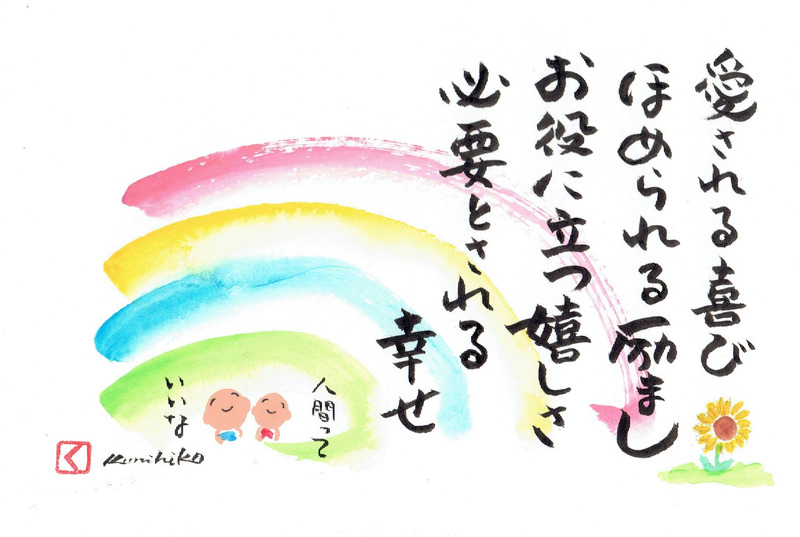 愛される喜び
ほめられる励まし
お役に立つ嬉しさ
必要とされる
幸せ
人間って
いいな
Kunihiko
く